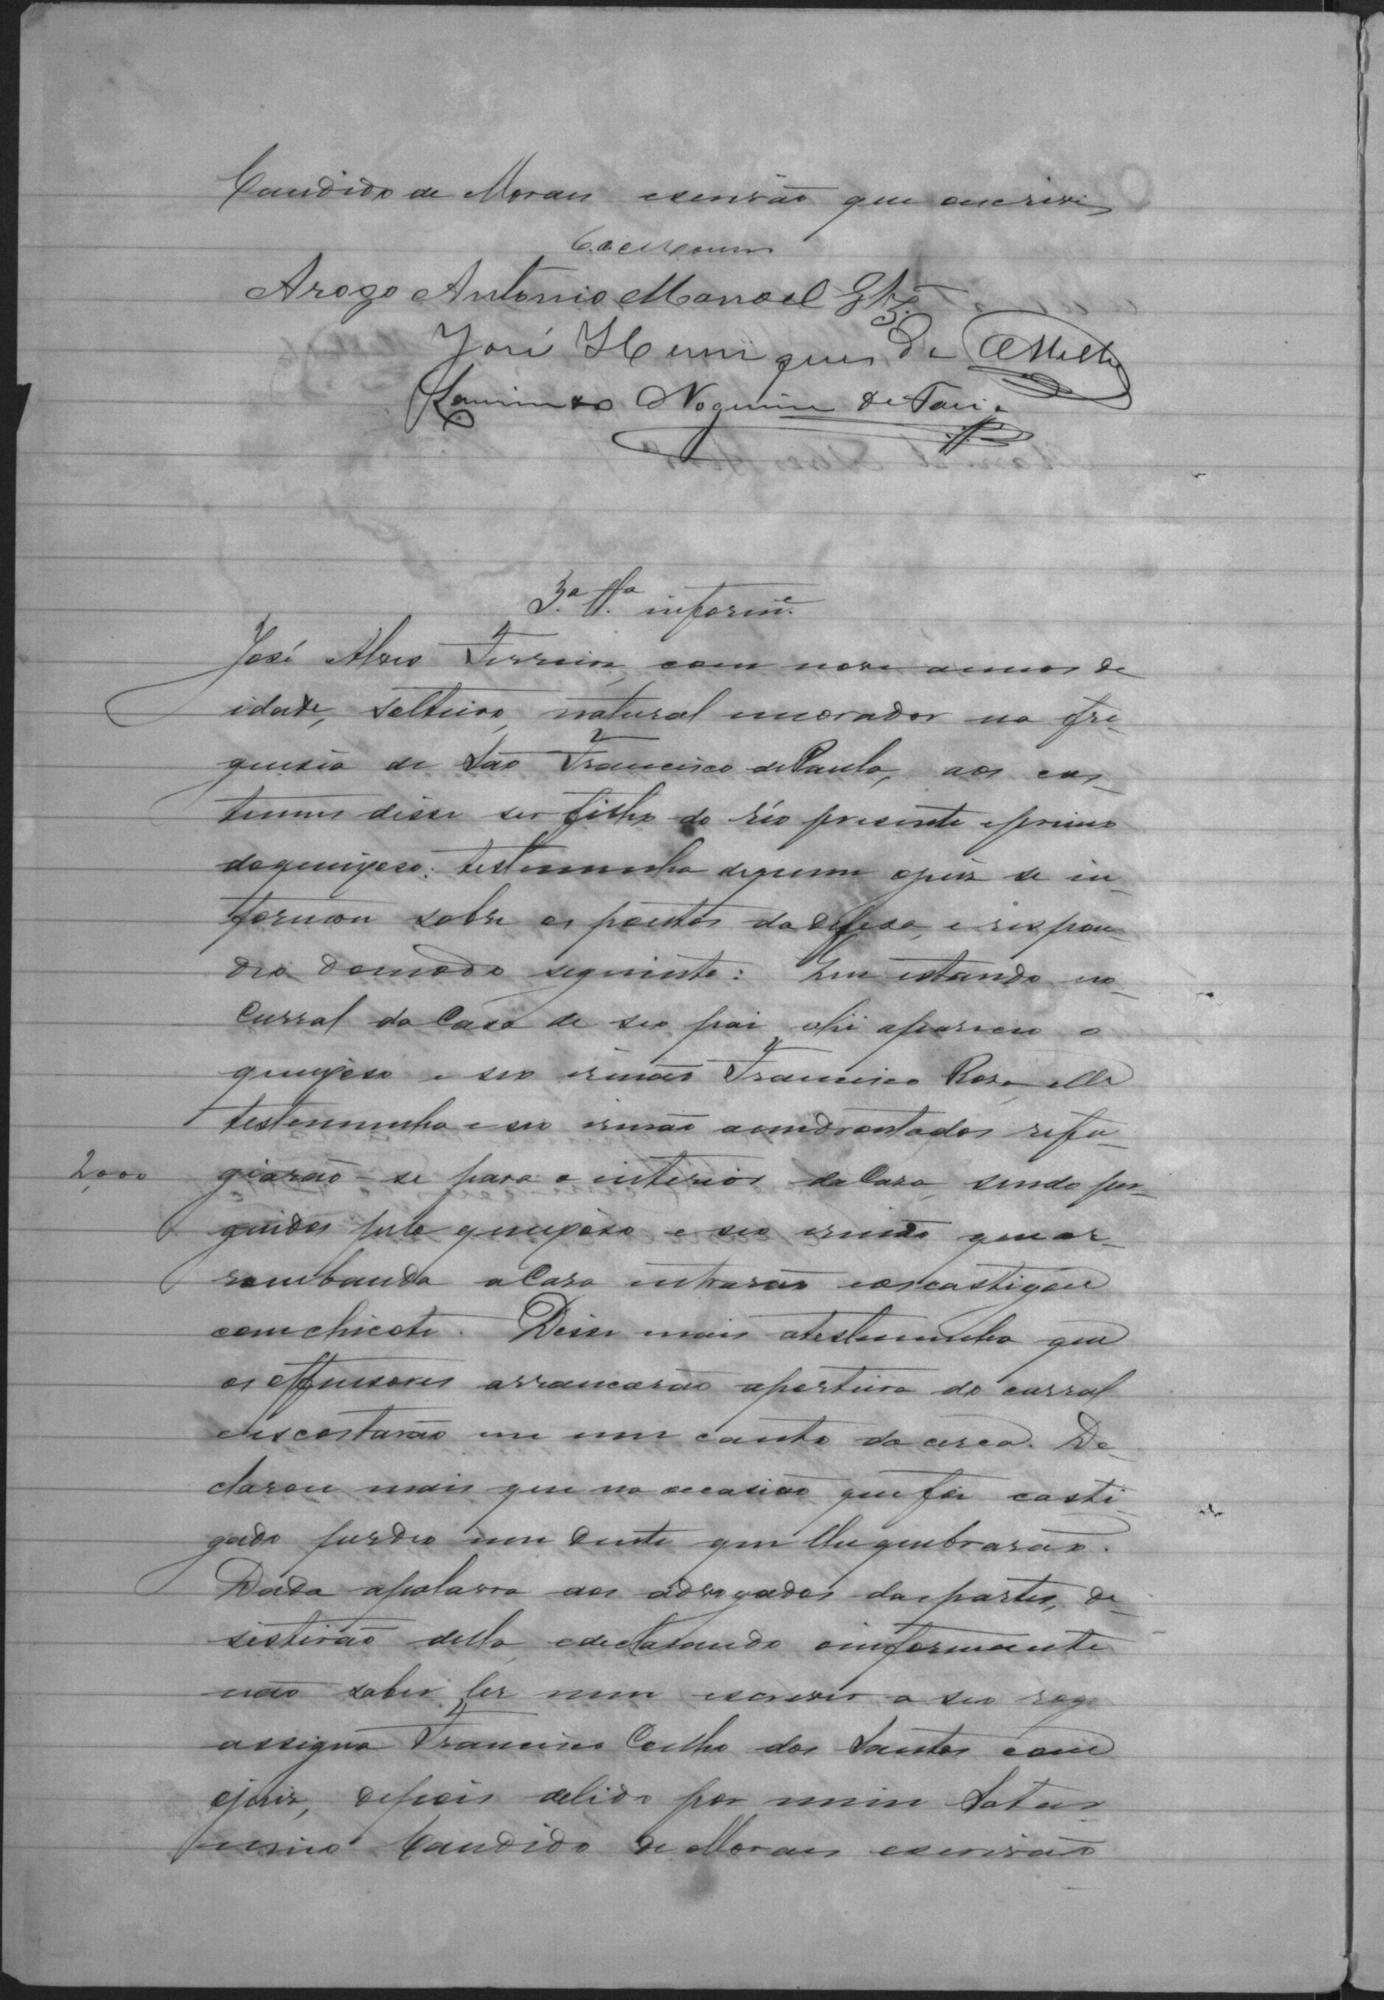 Candido de Moraes escrivão que escrevi
Arogo Antonio Manoel
José Henriques de Mello
Laurindo Nogueira de Faria
3.ª T.ª inform.e
José Alves Ferreira, com nove annos de
idade, solteiro, natural e morador na fre-
guesia de São Francisco de Paula, aos cos-
tumes disse ser filho do réo presente e primo
do queixoso: testemunha de quem o juiz se in-
formou sobre os pontos da defesa, e respon-
deo do modo seguinte: Que estando no
Curral da Casa de seo pai, ahi appareceo o
queixoso e seo irmão Francisco Rosa elle
testemunha e seo irmão amedrontados refu-
2,000 giarão-se para o interior da Casa, sendo per-
guidos pelo queixoso e seo irmão que ar-
rombando a Casa entrarão e os castigou
com chicote. Disse mais a testemunha que
os offensores arrancarão a porteira do curral
e incostarão em um canto da cerca. De-
clarou mais que na occasião que foi casti-
gado perdeo um dente que lhe quebrarão.
Dada a palavra aos advogados das partes, de-
sistirão della, e declarando o informante
não saber ler nem escrever a seo rogo
assigna Francisco Coelho dos Santos com
o juiz, depois de lido por mim Satur-
nino Candido de Moraes escrivão